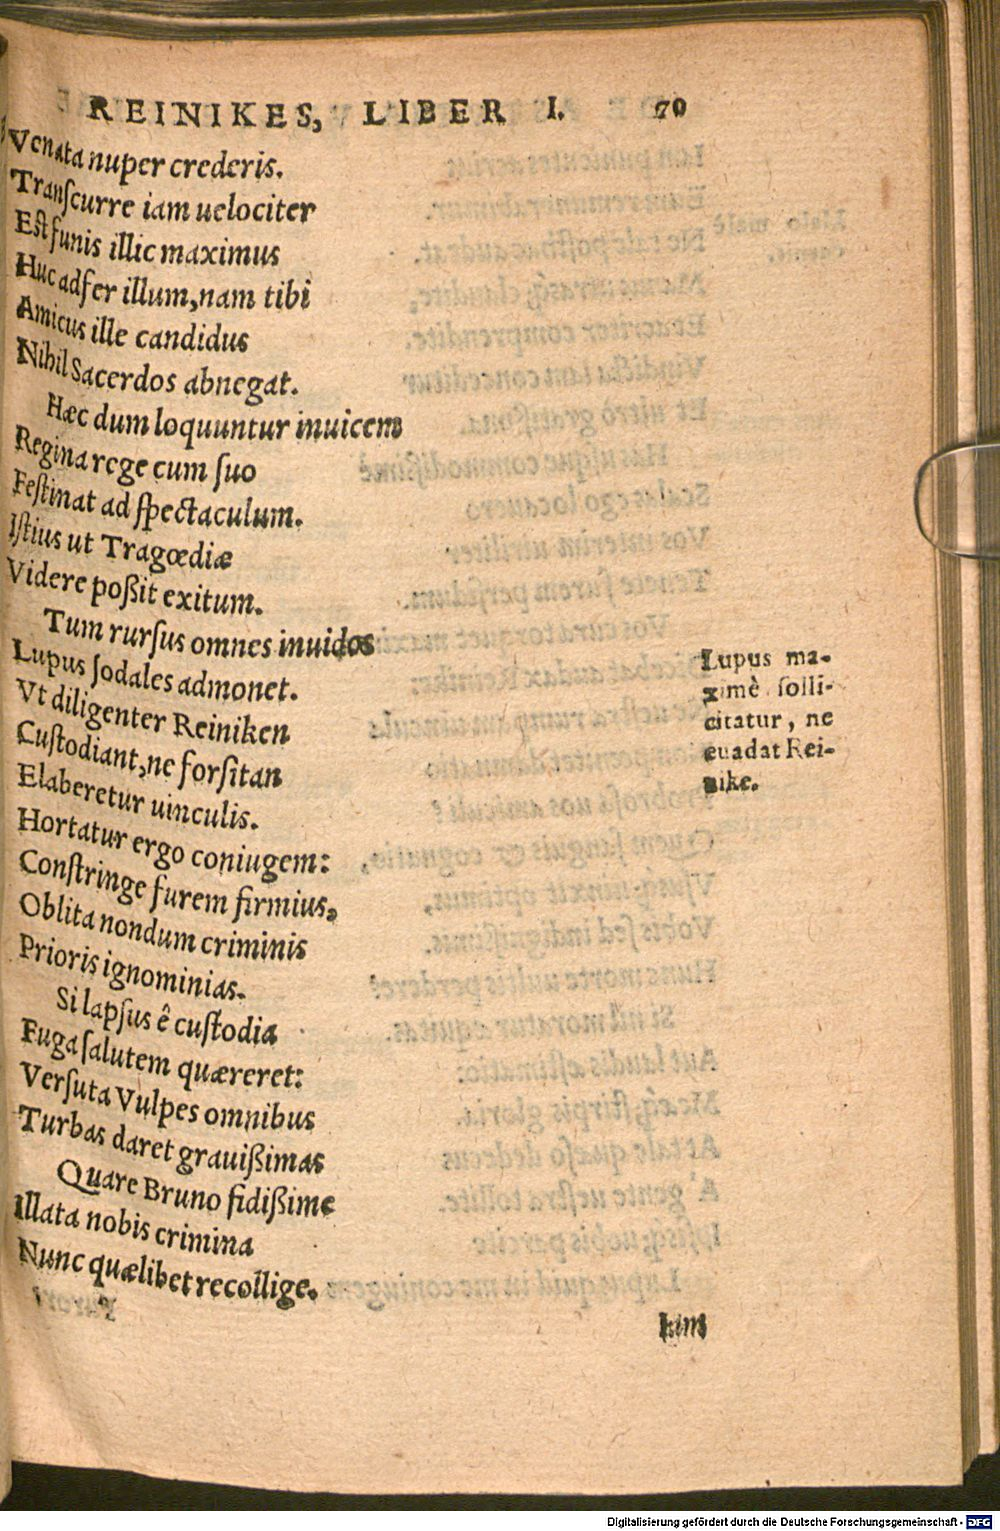 REINIKES, LIBER I. 70
Venata nuper crederis.
Tranſcurre iam uelociter
Eſt funis illic maximus
Huc adfer illum, nam tibi
Amicus ille candidus
Nihil Sacerdos abnegat.
Hæc dum loquuntur inuicem
Regina rege cum ſuo
Feſtinat ad ſpectaculum.
Iſtius ut Tragœdiæ
Videre poßit exitum.
Tum rurſus omnes inuidos
Lupus ſodales admonet.
Vt diligenter Reiniken
Cuſtodiant, ne forſitan
Elaberetur uinculis.
Hortatur ergo coniugem:
Conſtringe furem firmius,
Oblita nondum criminis
Prioris ignominias.
Si lapſus ê cuſtodia
Fuga ſalutem quæreret:
Verſuta Vulpes omnibus
Turbas daret grauißimas
Quare Bruno fidißime
Illata nobis crimina
Nunc quælibet recollige.
Lupus ma-
ximè ſolli-
citatur, ne
euadat Rei-
nike.
Digitalisierung gefördert durch die Deutsche Forschungsgemeinschaft - DFG